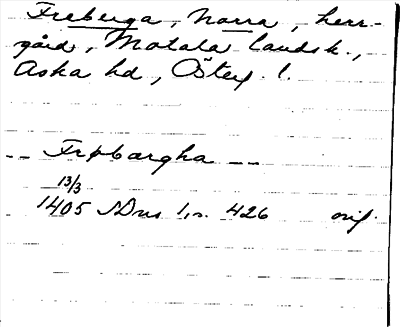 Freberga, Norra, herr-
gård, Motala landsk.,
Aska hd, Österg. l.
-- Frøbærgha --
13/3
1405 SDns 1, nr. 426 orig.